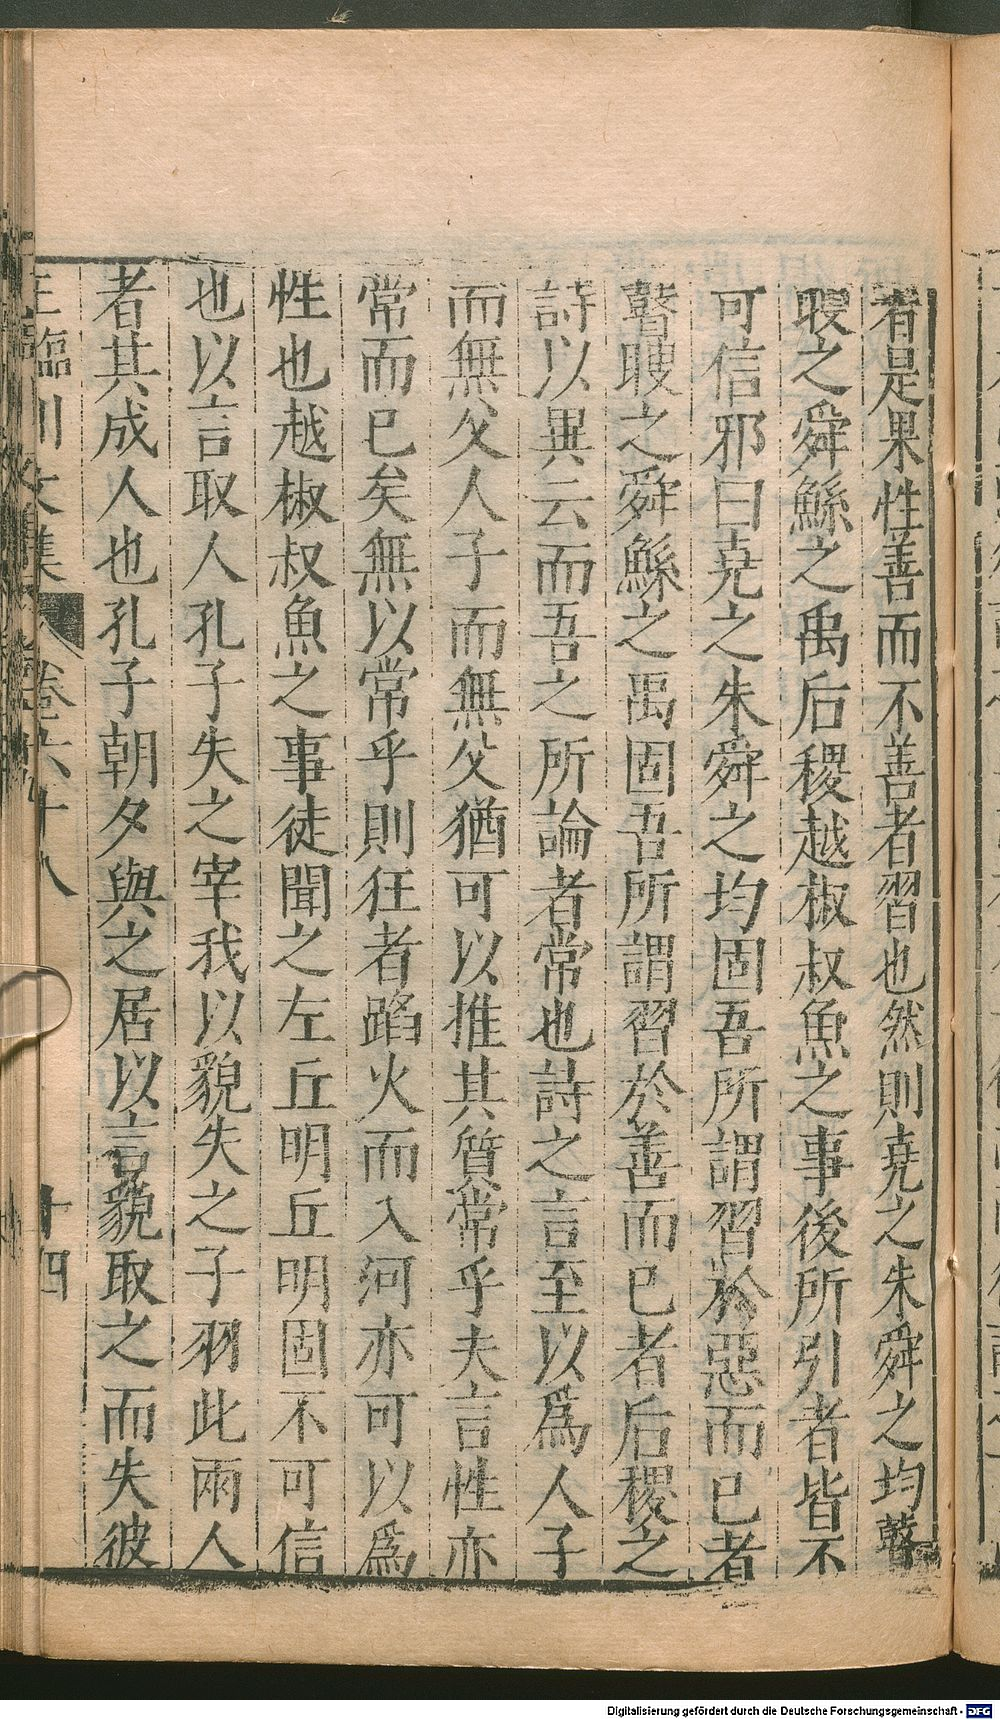 者是果性善而不善者習也然則堯之朱舜之均瞽
瞍之舜鯀之禹后稷越椒叔魚之事後所引者皆不
可信邪曰堯之朱舜之均固吾所謂習於惡而已者
瞽瞍之舜鯀之禹固吾所謂習於善而已者后稷之
詩以異云而吾之所論者常也詩之言至以爲人子
而無父人子而無父猶可以推其質常乎夫言性亦
常而已矣無以常乎則狂者蹈火而入河亦可以爲
性也越椒叔魚之事徒聞之左丘明丘明固不可信
也以言取人孔子失之宰我以貌失之子羽此兩人
者其成人也孔子朝夕與之居以言貌取之而失彼
王臨川文集 卷六十八 十四
Digitalisierung gefördert durch die Deutsche Forschungsgemeinschaft - DFG